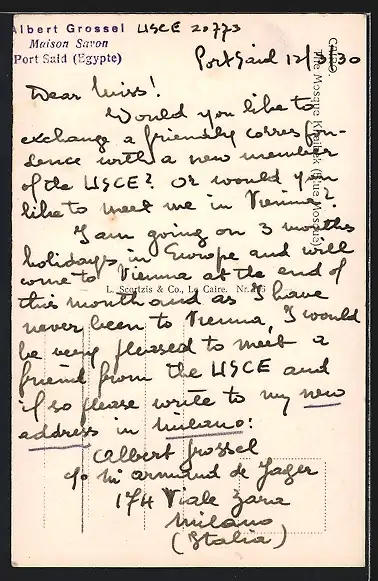 Albert Grossel
Maison Savon
Port Said (Egypte)
USCE 20773
Port Said 12/ 30
Dear Miss!
Would you like to
exchange a friendly correspon-
dence with a new member
of the USCE? Or would you
like to meet me in Vienna?
I am going on 3 months
holidays in Europe and will
come to Vienna at the end of
this month and as I have
never been to Vienna, I would
be very pleased to meet a
friend from the USCE and
if so please write to my new
address in Milano:
Albert Grossel
c/o Mr armand de Jager
174 Viale Zara
Milano
(Italia)
CAIRO.
The Mosque Khairbek (Blue Mosque)
L. Scortzis & Co., Le Caire. Nr.